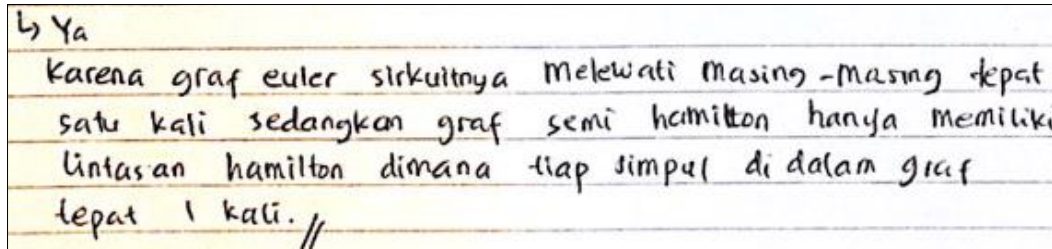 ↳ Ya
Karena graf euler sirkuitnya melewati masing-masing tepat
satu kali sedangkan graf semi hamilton hanya memiliki
lintasan hamilton dimana tiap simpul di dalam graf
tepat 1 kali. //